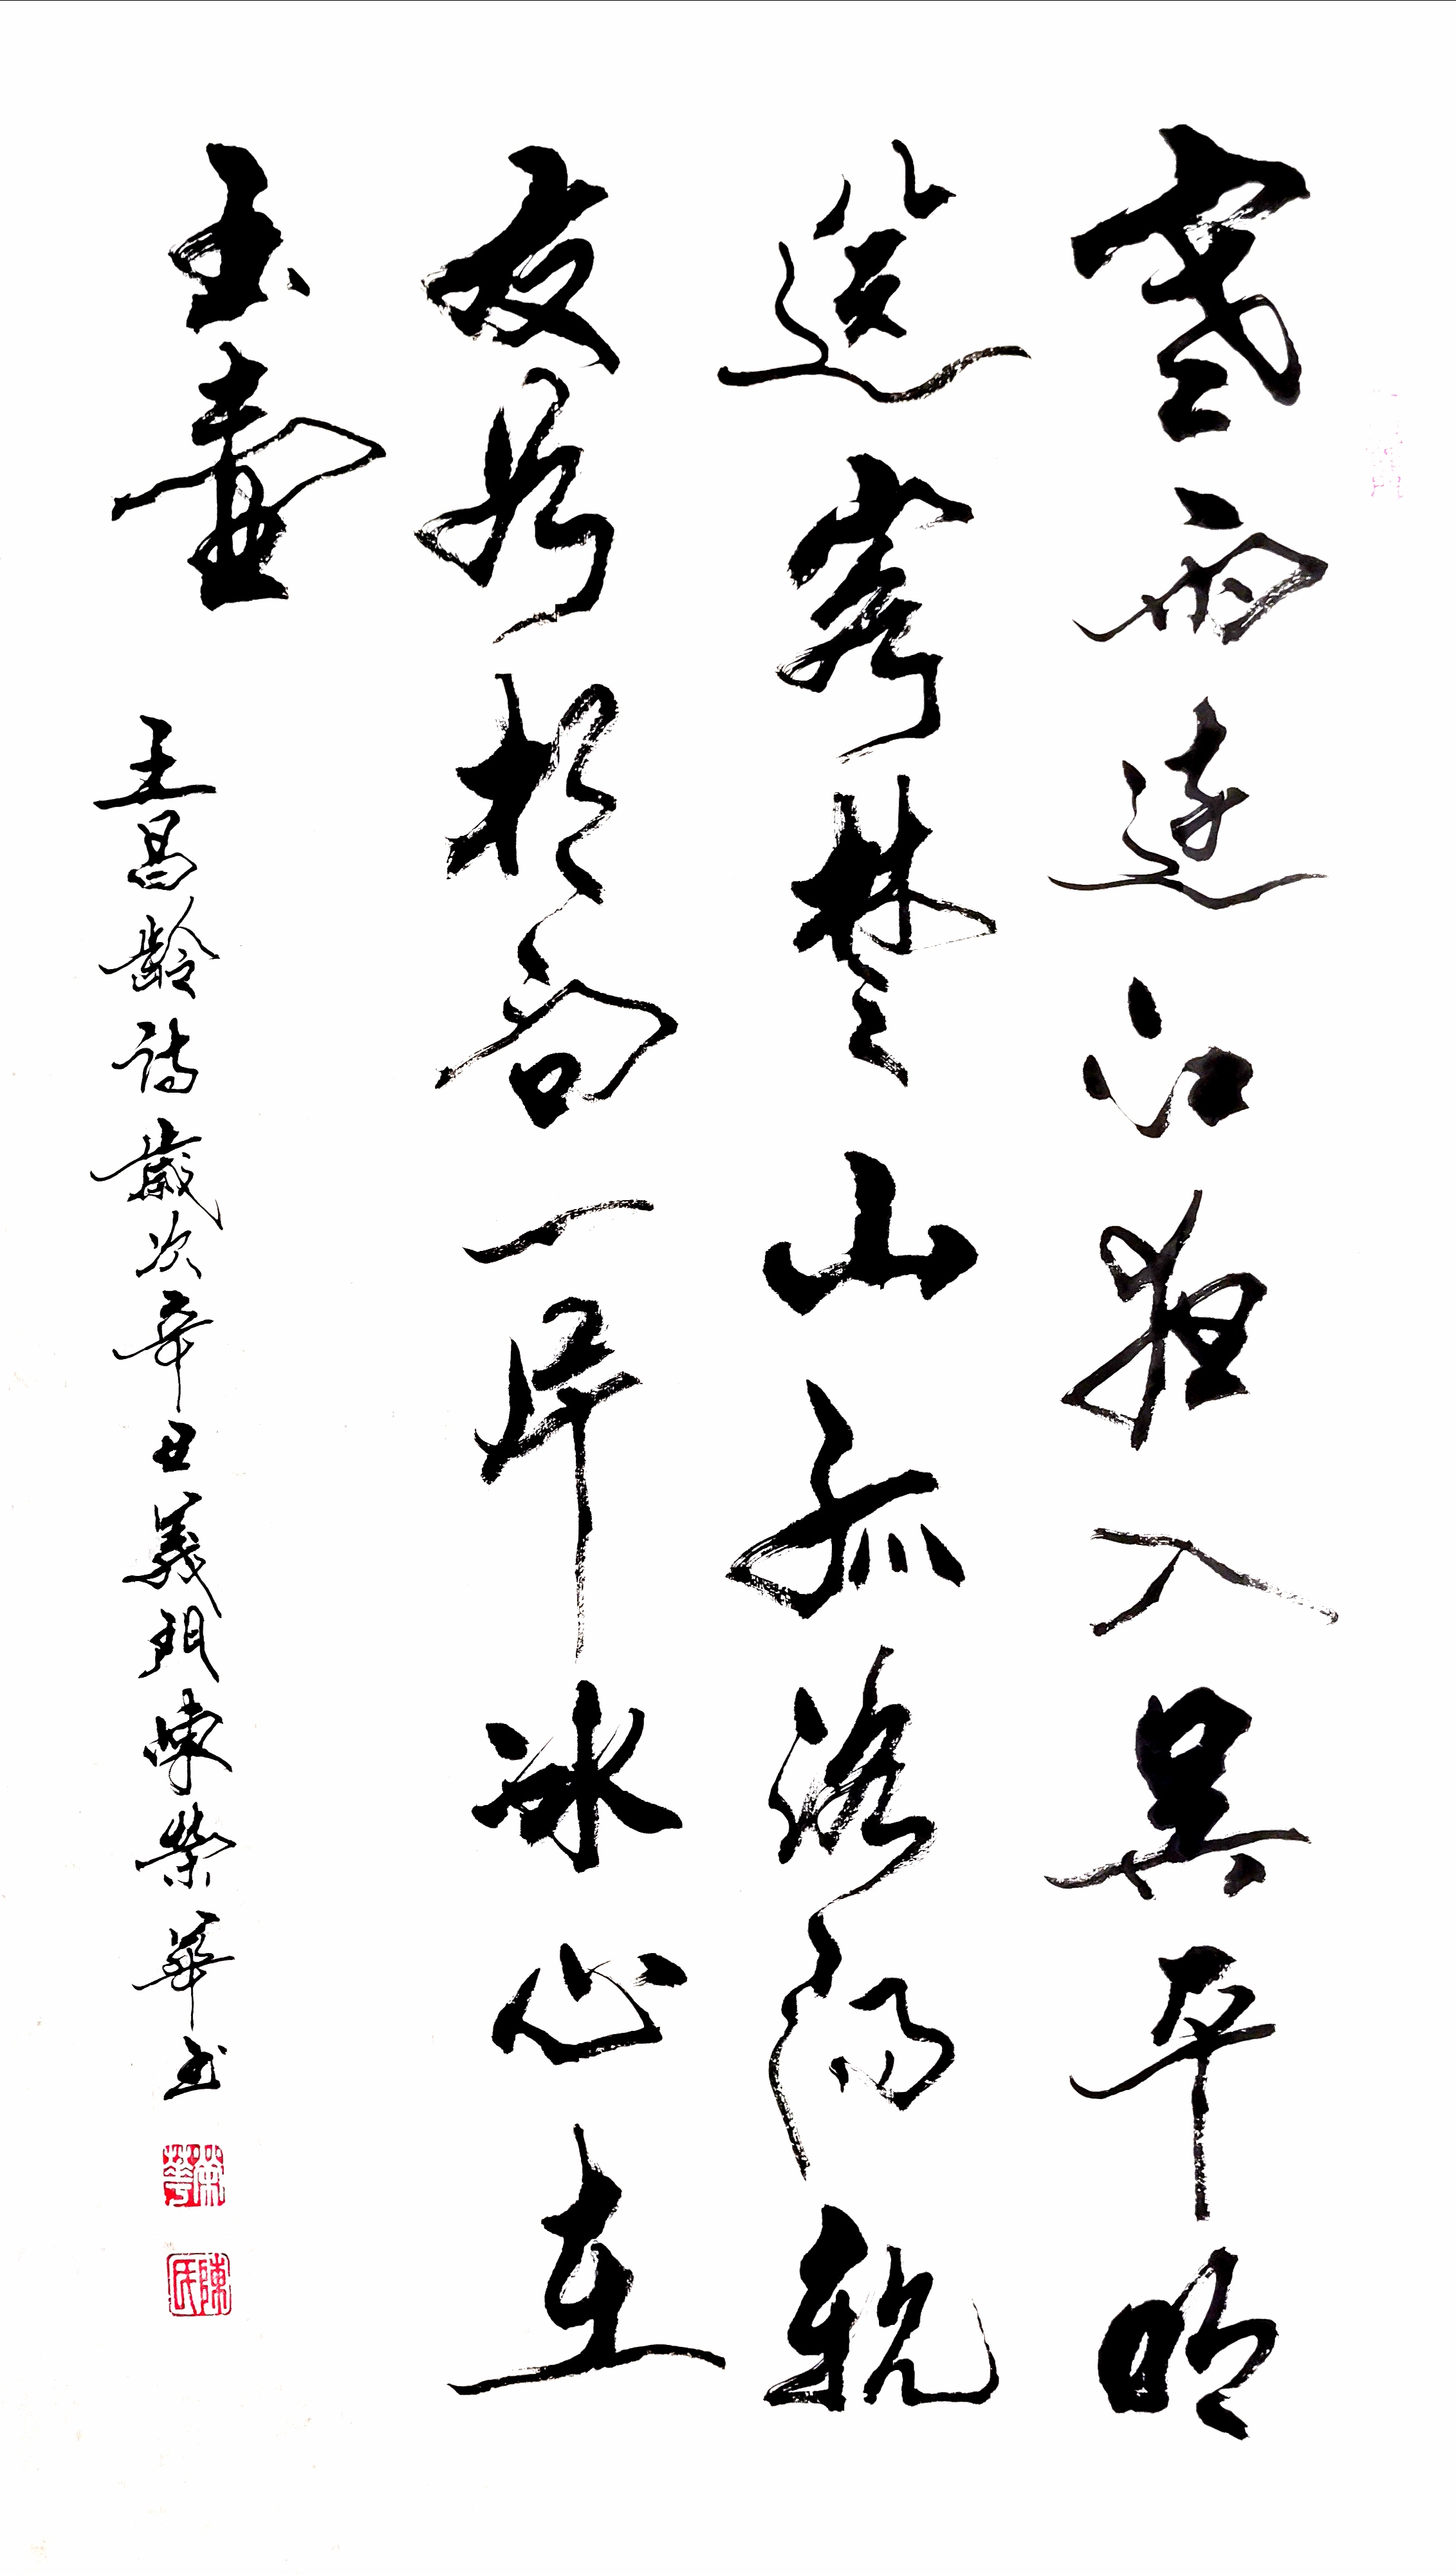 寒雨連江夜入吳平明
送客楚山孤洛陽親
友如相問一片冰心在
玉壺
王昌齡詩歲次辛丑義門陳榮華書
榮華
陳氏